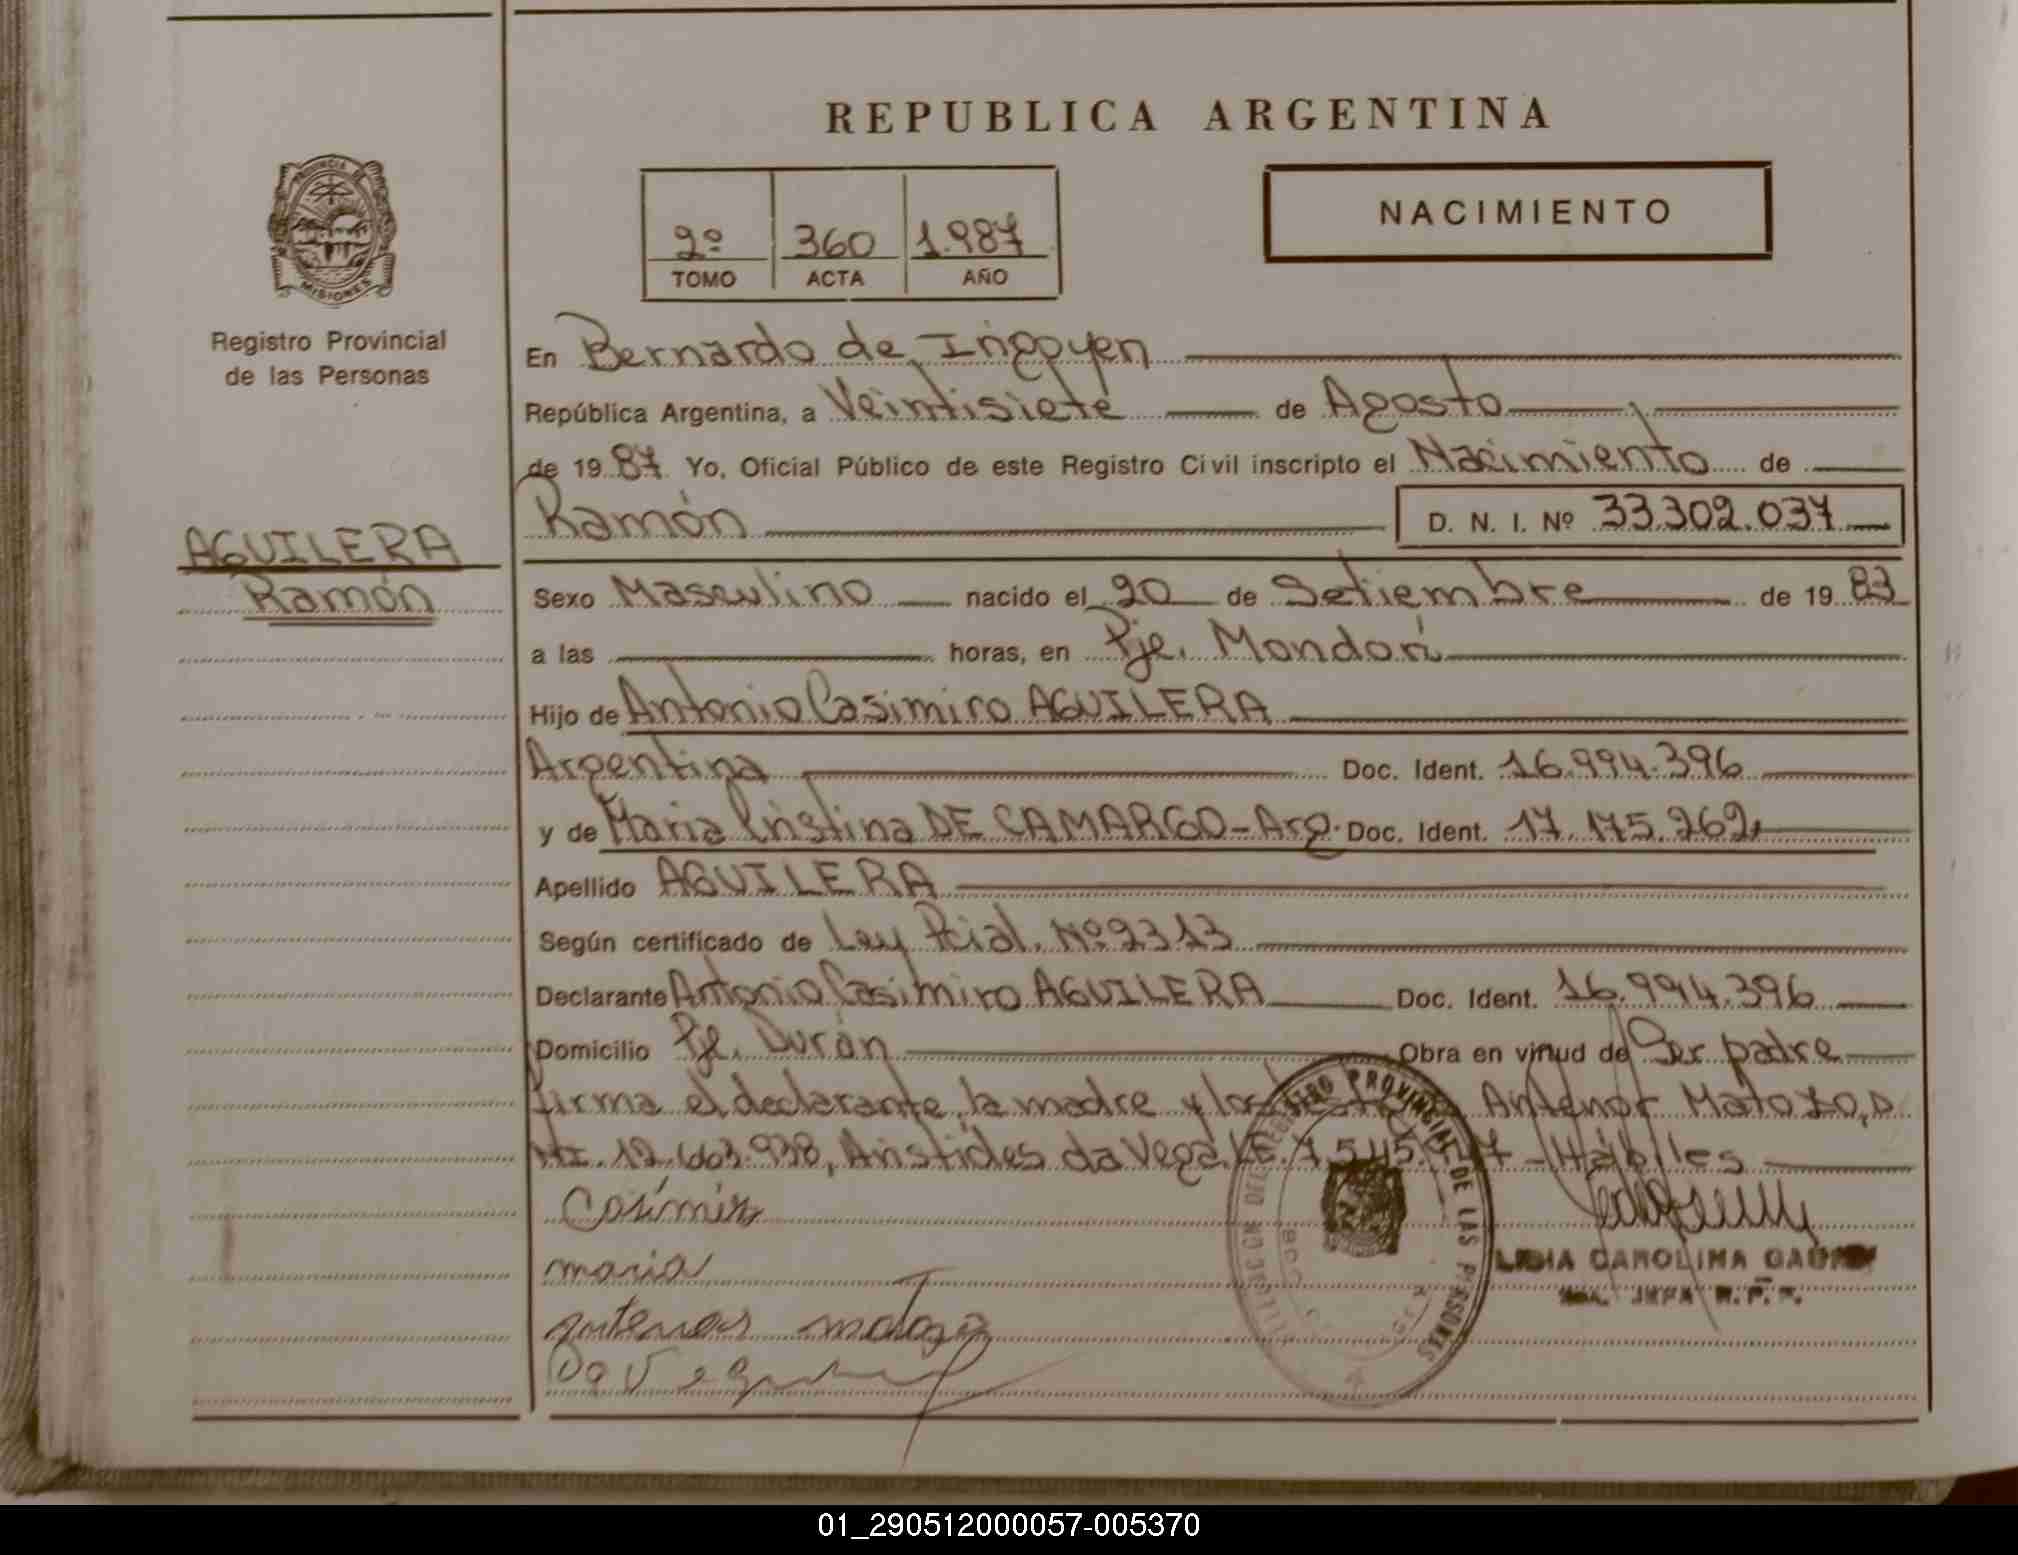 REPUBLICA ARGENTINA
NACIMIENTO
2º 360 1.987
TOMO ACTA AÑO
PROVINCIA DE
MISIONES
Registro Provincial
de las Personas
AGUILERA
Ramón
En Bernardo de Irigoyen
República Argentina, a Veintisiete de Agosto
de 1987 Yo, Oficial Público de este Registro Civil inscripto el Nacimiento de
Ramón D. N. I. Nº 33.302.037
Sexo Masculino nacido el 20 de Setiembre de 1983
a las horas, en Pje. Mondorí
Hijo de Antonio Casimiro AGUILERA
Argentina Doc. Ident. 16.994.396
y de Maria Cristina DE CAMARGO - Arg. Doc. Ident. 17.175.262
Apellido AGUILERA
Según certificado de Ley Pcial. Nº 2313
Declarante Antonio Casimiro AGUILERA Doc. Ident. 16.994.396
Domicilio Pje. Durán Obra en virtud de Ser padre
firma el declarante, la madre y los Antenor Matozo, D
NI. 12.663.938, Aristides da Vega L.E. - Hábiles
Casimiro
maria
antenor matozo
Da Vega
REGISTRO PROVINCIAL DE LAS PERSONAS
LIDIA CAROLINA
JEFA R. P. P.
01_290512000057-005370